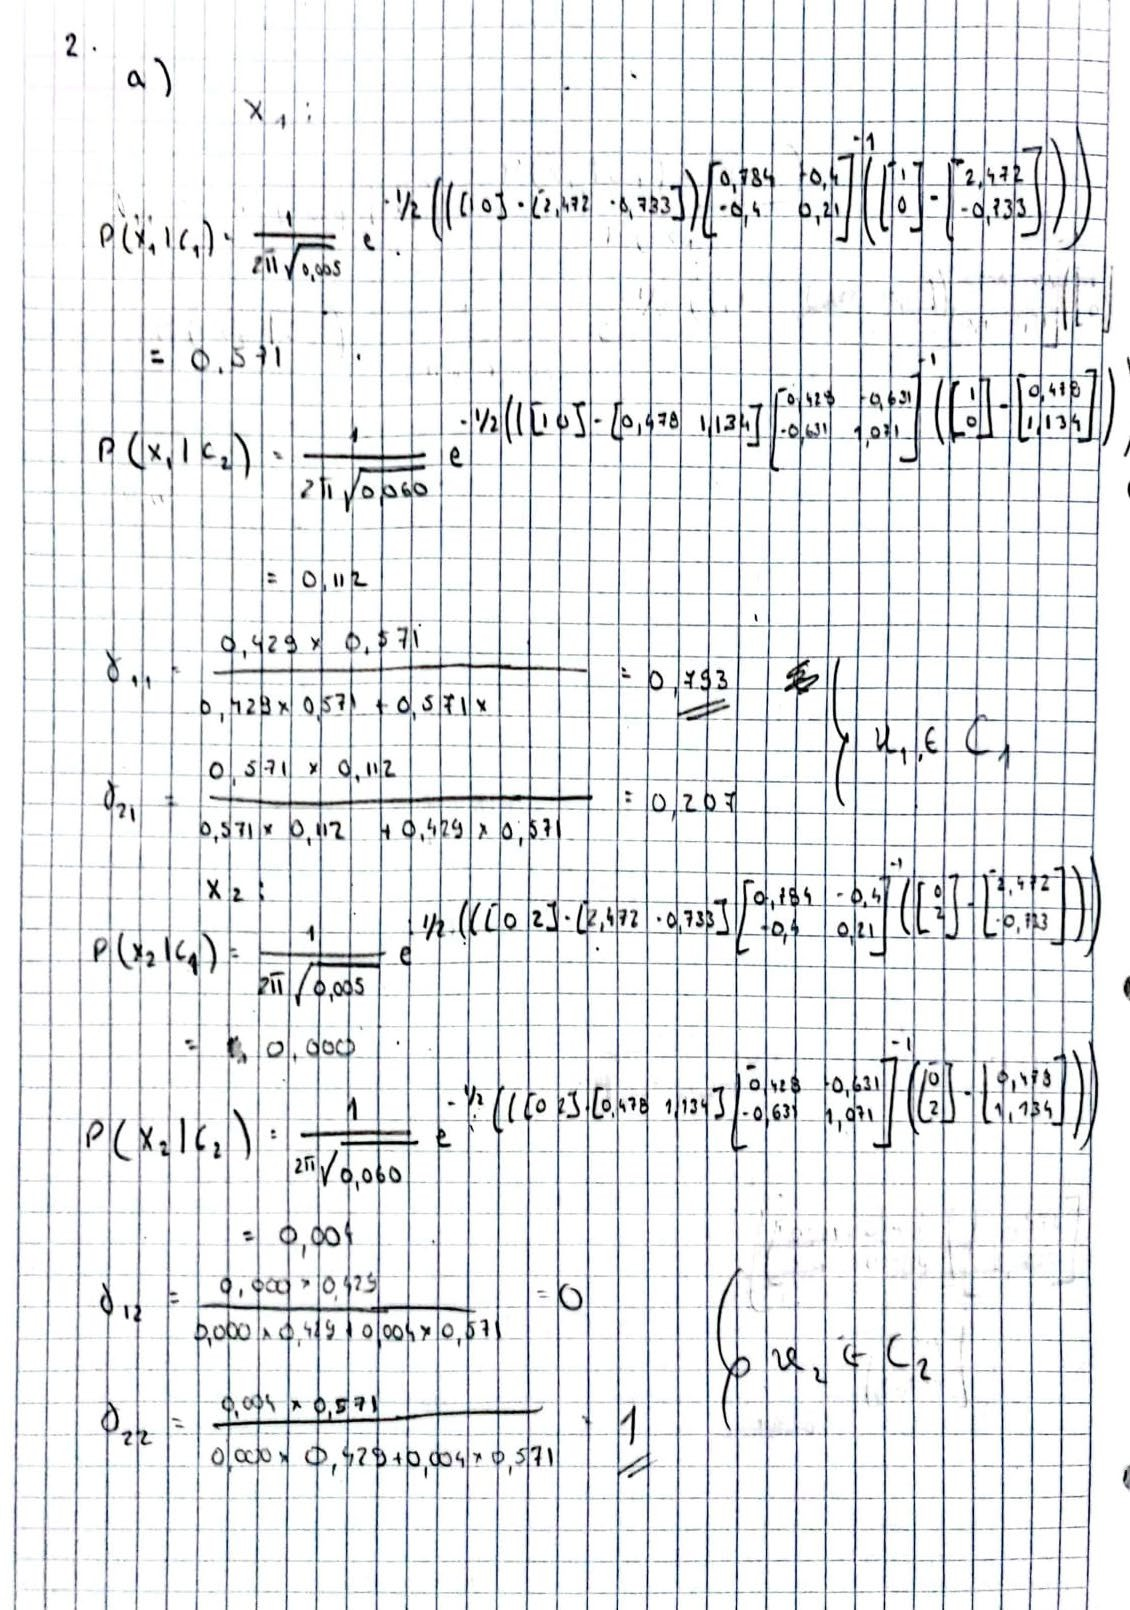 2.
a)
x₁ :
P(x₁|C₁) = 1/(2π√0,005) e^(-1/2 ((([1 0] - [2,472 -0,733]) [0,784 -0,4; -0,4 0,21]^-1 ([1; 0] - [2,472; -0,733]))))
= 0,571
P(x₁|C₂) = 1/(2π√0,060) e^(-1/2 (([1 0] - [0,478 1,134] [0,428 -0,631; -0,631 1,071]^-1 ([1; 0] - [0,478; 1,134])))
= 0,112
γ₁₁ = (0,429 × 0,571)/(0,429 × 0,571 + 0,571 ×) = 0,793
x₁ ∈ C₁
γ₂₁ = (0,571 × 0,112)/(0,571 × 0,112 + 0,429 × 0,571) = 0,207
x₂ :
P(x₂|C₁) = 1/(2π√0,005) e^(1/2 ((([0 2] - [2,472 -0,733] [0,784 -0,4; -0,4 0,21]^-1 ([0; 2] - [2,472; -0,733])))
= 0,000
P(x₂|C₂) = 1/(2π√0,060) e^(-1/2 ((([0 2] - [0,478 1,134] [0,428 -0,631; -0,631 1,071]^-1 ([0; 2] - [0,478; 1,134])))
= 0,004
γ₁₂ = (0,000 × 0,429)/(0,000 × 0,429 + 0,004 × 0,571) = 0
x₂ ∈ C₂
γ₂₂ = (0,004 × 0,571)/(0,000 × 0,429 + 0,004 × 0,571) = 1